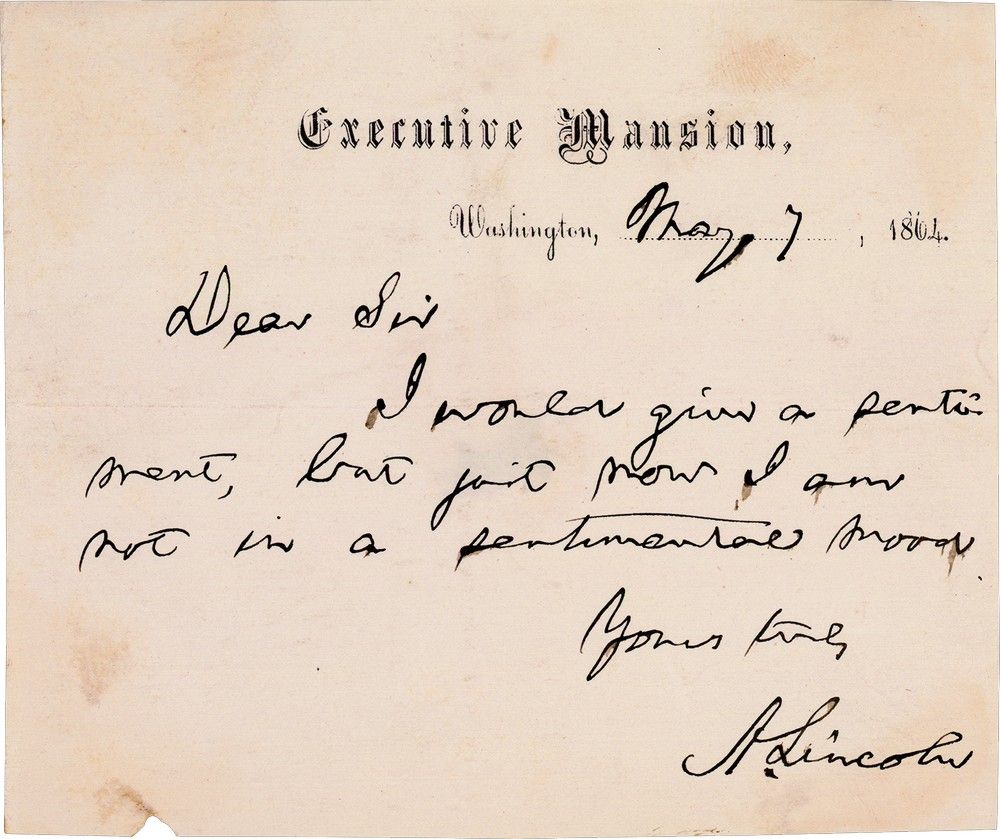 Executive Mansion,
Washington, May 7, 1864.
Dear Sir
I would give a senti-
ment, but just now I am
not in a sentimental mood.
Yours truly
A. Lincoln